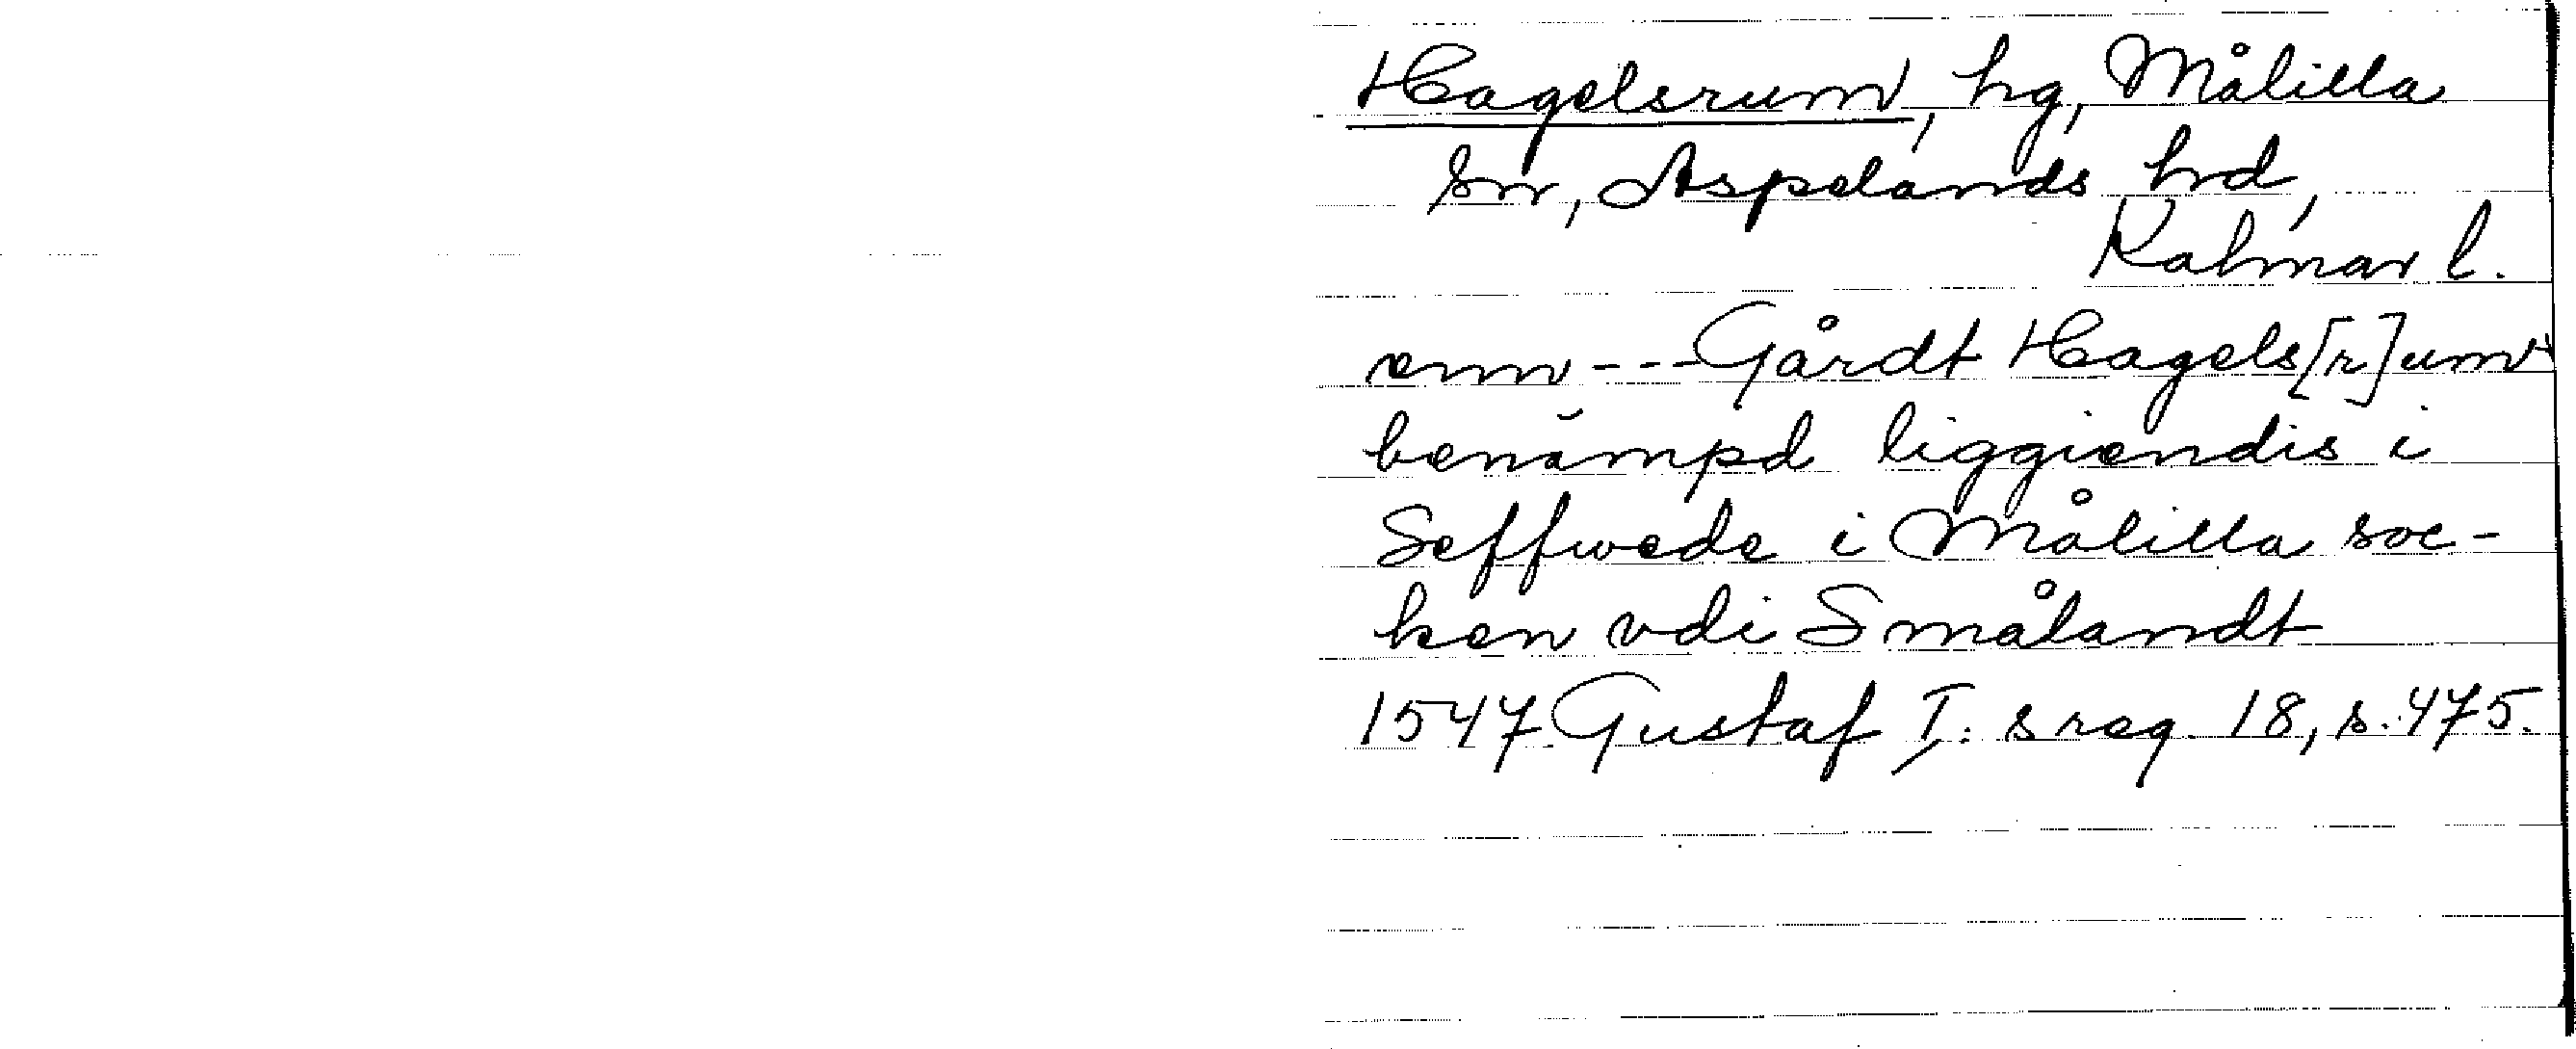 Hagelsrum, hg, Målilla
sn, Aspelands hd,
Kalmar l.
enn --- Gårdt Hagels[r]um
benämpd liggiendis i
Seffwede i Målilla soc-
ken vdi Smålandt
1547 Gustaf I:s reg. 18, s. 475.